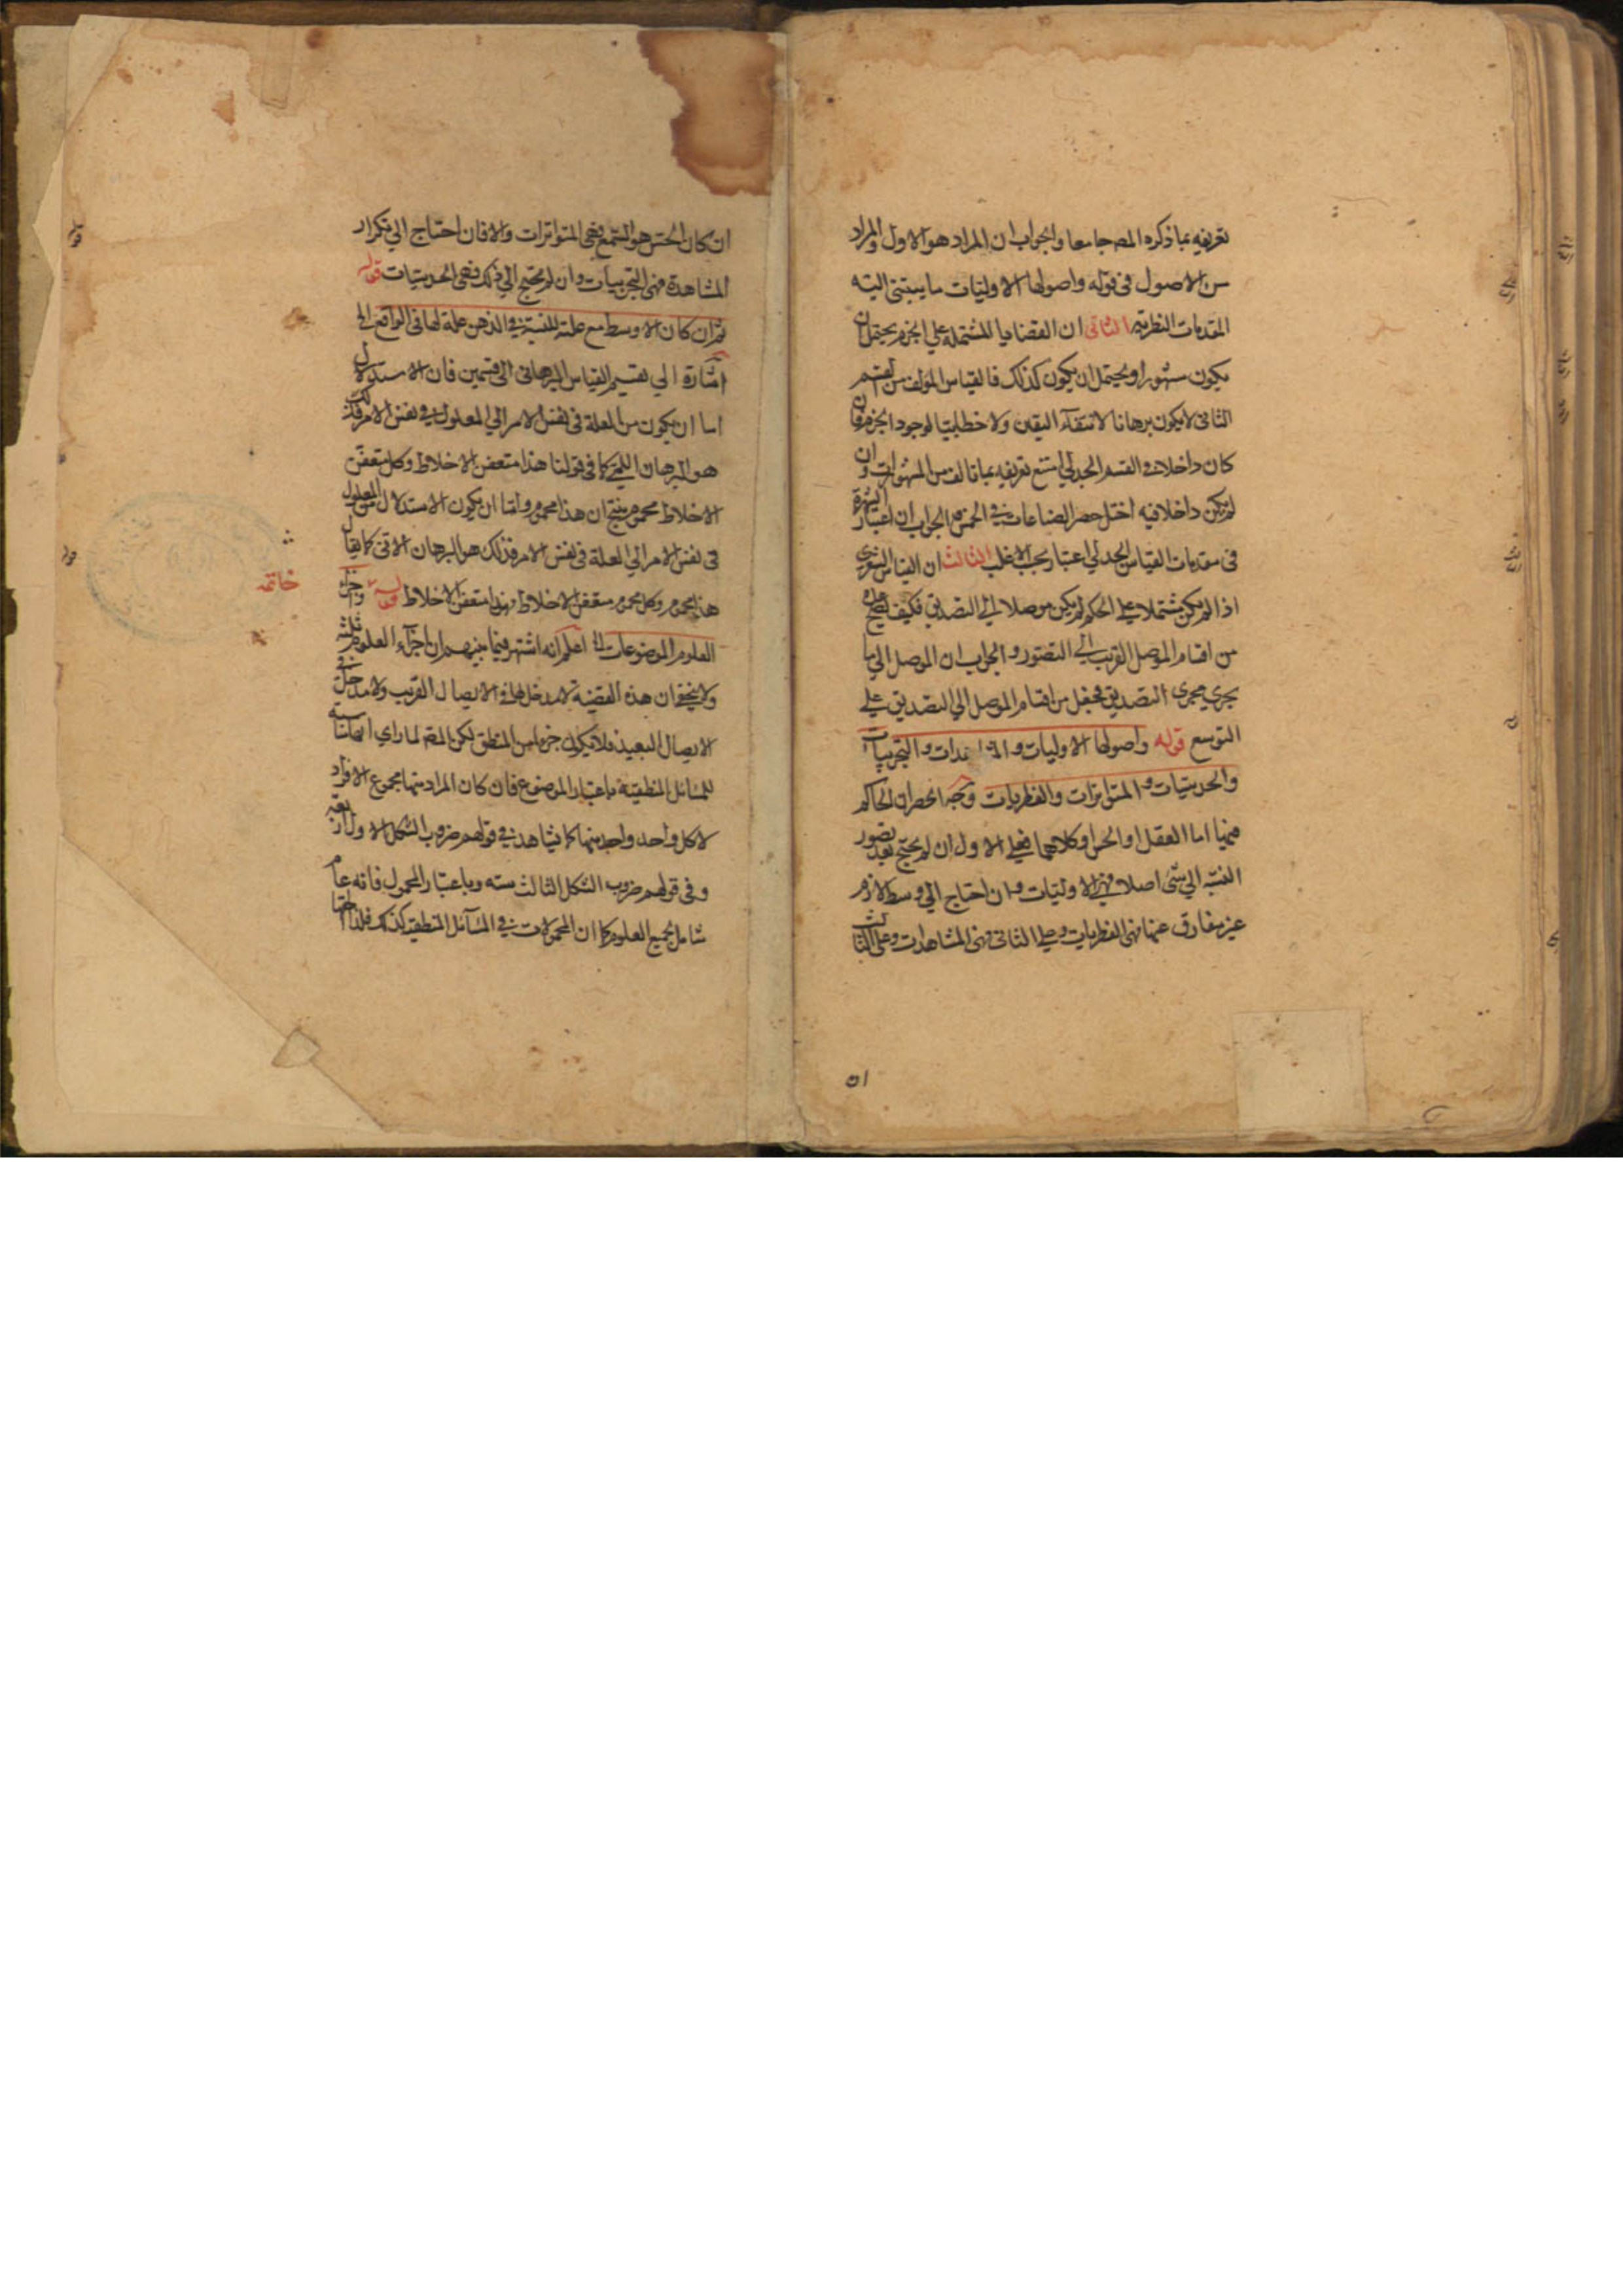 تعريفه بما ذكره المصـ جامعا والجواب ان المراد هو الاول والمراد
من الاصول في قوله واصولها الاوليات ما يبتنى اليه
المقدمات النظرية الثاني ان القضايا المشتملة على الجزم يحتمل ان
يكون مشهورا ويحتمل ان يكون كذلك فالقياس المؤلف من القسم
الثاني لا يكون برهانا لانتفاء اليقين ولا خطابيا لوجود الجزم فان
كان داخلا في القسم الجدلي امتنع تعريفه بما تالف من المشهورات وان
لم يكن داخلا فيه اختل حصر الصناعات في الخمس والجواب ان اعتبار الشهرة
في مقدمات القياس الجدلي اعتبار بحسب الاغلب الثالث ان القياس الشعري
اذا لم يكن مشتملا على الحكم لم يكن موصلا الى التصديق فكيف يصح عده
من اقسام الموصل القريب الى التصور والجواب ان الموصل الى ما
يجري مجرى التصديق فجعل من اقسام الموصل الى التصديق على
التوسع قوله واصولها الاوليات والمشاهدات والتجربيات
والحدسيات والمتواترات والفطريات وجه انحصار الحاكم
فيها اما العقل او الحس او كلاهما فعلى الاول ان لم يحتج بعد تصور
النسبة الى شئ اصلا فهي الاوليات وان احتاج الى وسط لازم
غير مفارق عنها فهي الفطريات وعلى الثاني فهي المشاهدات وعلى الثالث
ان
ان كان الحس هو السمع فهي المتواترات والا فان احتاج الى تكرار
المشاهدة فهي التجربيات وان لم يحتج الى ذلك فهي الحدسيات قوله
ثم ان كان الاوسط مع علته للنسبة في الذهن علة لها في الواقع الخ
اشارة الى تقسيم القياس البرهاني الى قسمين فان الاستدلال
اما ان يكون من العلة في نفس الامر الى المعلول في نفس الامر فذلك
هو البرهان اللمي كما في قولنا هذا متعفن الاخلاط وكل متعفن
الاخلاط محموم ينتج ان هذا محموم واما ان يكون الاستدلال من المعلول
في نفس الامر الى العلة في نفس الامر فذلك هو البرهان الاني كما يقال
هذا محموم وكل محموم متعفن الاخلاط فهذا متعفن الاخلاط قوله واجزاء
خاتمه
العلوم الموضوعات الخ اعلم انه اشتهر فيما بينهم ان اجزاء العلوم ثلثه
ولا يخفى ان هذه القضية لا مدخل لها في الايصال القريب ولا مدخل في
الايصال البعيد فلا يكون جزءا من المنطق لكن المصـ لما راى
للمسائل المنطقية باعتبار الموضوع فان كان المراد منها مجموع الافراد
لا كل واحد واحد منها كما يشاهد في قولهم ضروب الشكل الاول اربعة
وفي قولهم ضروب الشكل الثالث سته وباعتبار المحمول فانه عام
شامل لجميع العلوم كما ان المحمولات في المسائل المنطقية كذلك فلذا